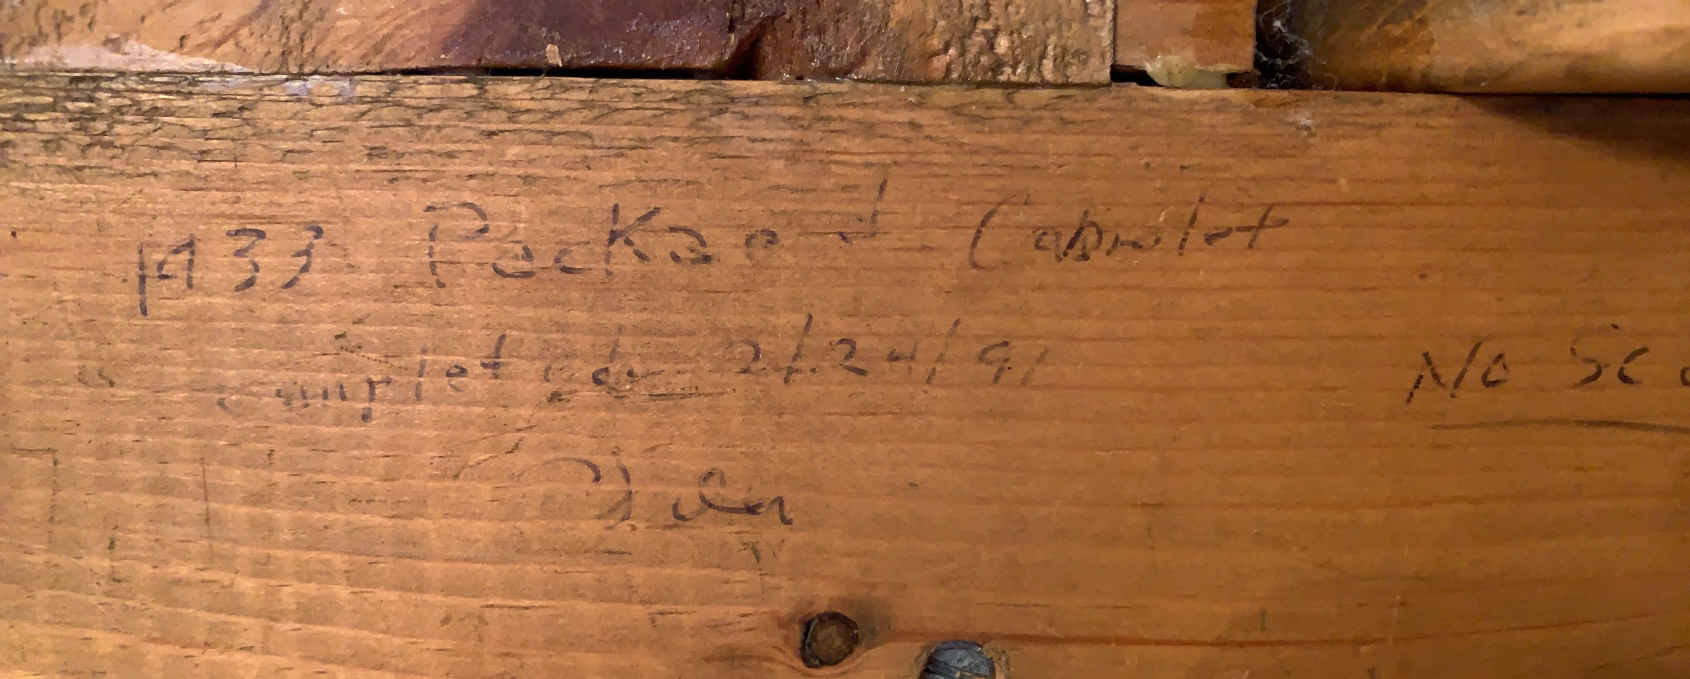 1933 Packard Cabrolet
Completed 2/24/91
No Sc